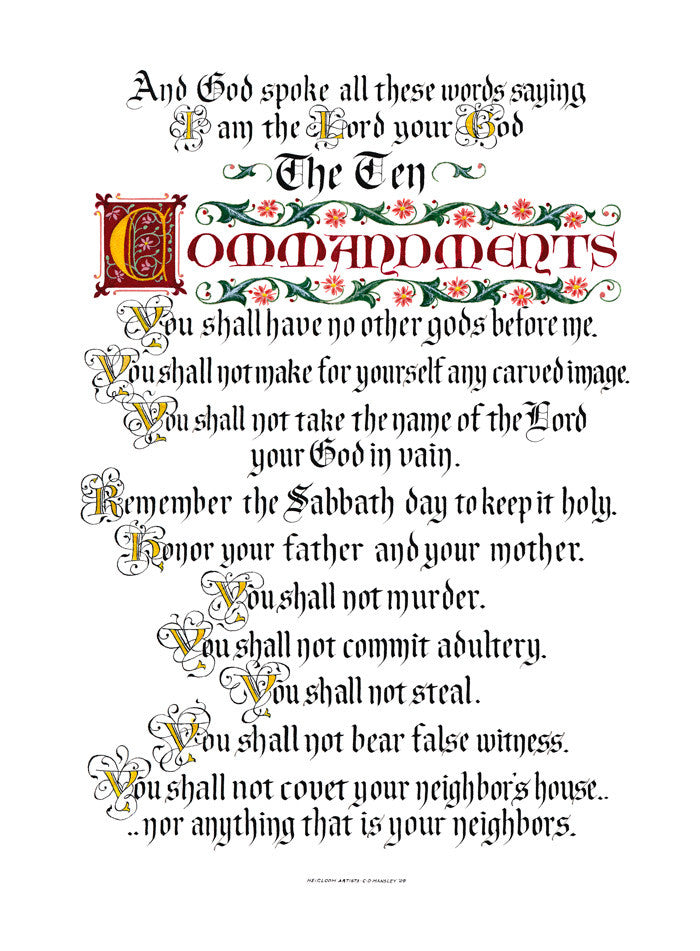 And God spoke all these words saying
I am the Lord your God
The Ten
COMMANDMENTS
You shall have no other gods before me.
You shall not make for yourself any carved image.
You shall not take the name of the Lord
your God in vain.
Remember the Sabbath day to keep it holy.
Honor your father and your mother.
You shall not murder.
You shall not commit adultery.
You shall not steal.
You shall not bear false witness.
You shall not covet your neighbor's house..
..nor anything that is your neighbors.
HEIRLOOM ARTISTS C.D.HANSLEY